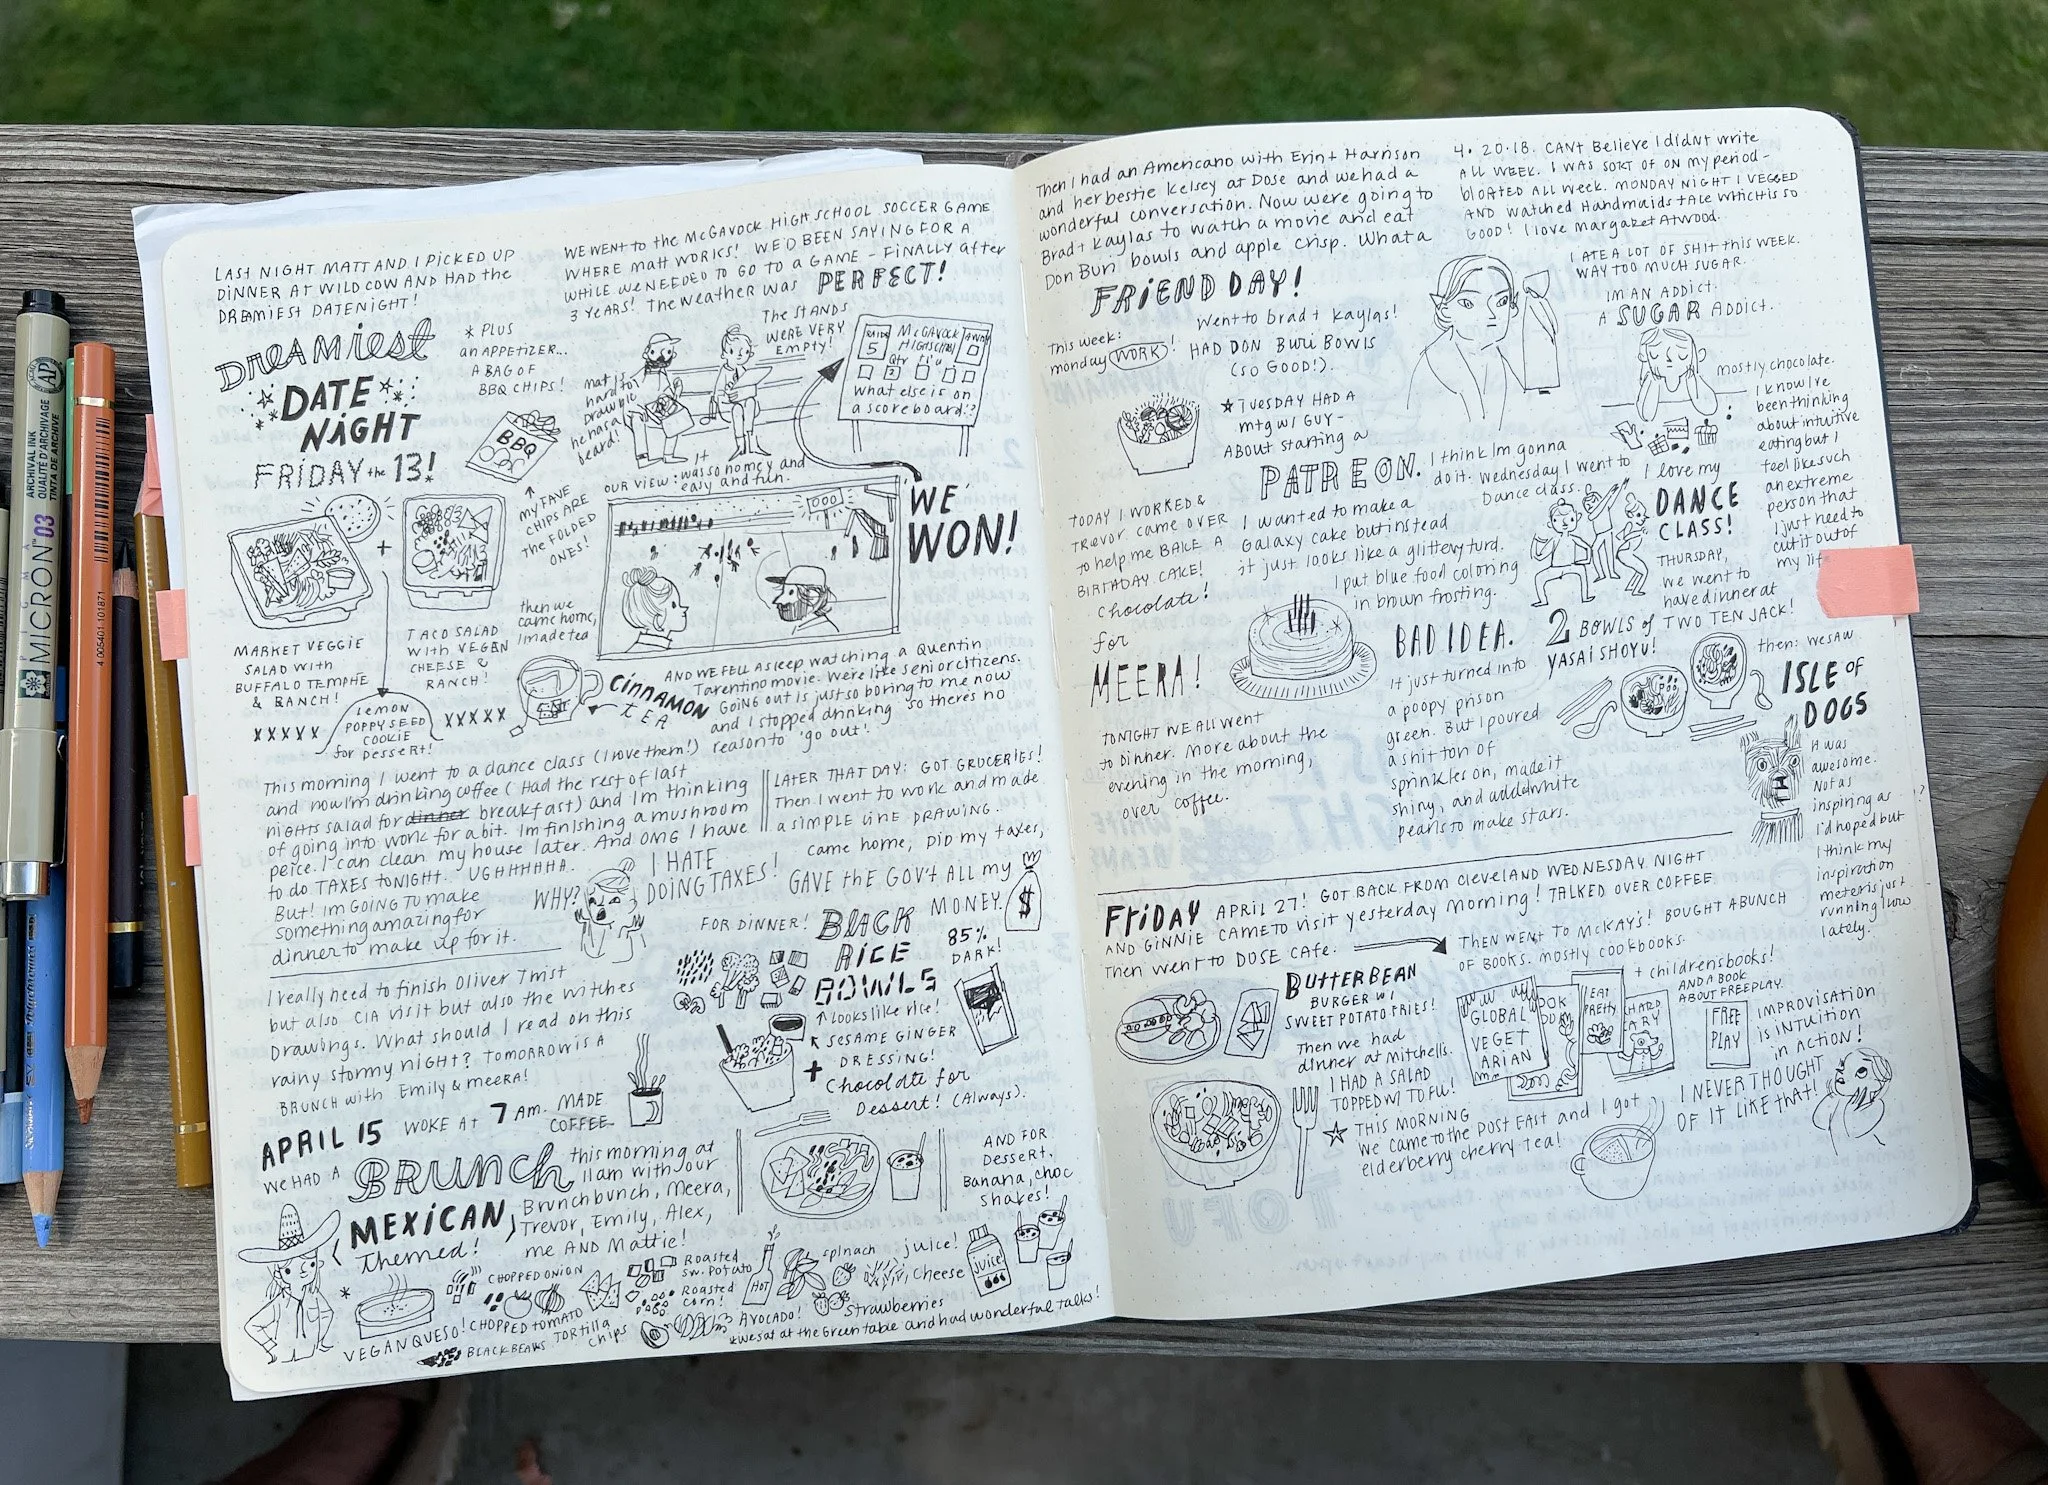 LAST NIGHT MATT AND I PICKED UP
DINNER AT WILD COW AND HAD the
DREAMIEST DATENIGHT!
DREAMIEST
DATE
NIGHT
FRIDAY the 13!
* PLUS
an APPETIZER...
A BAG OF
BBQ CHIPS!
BBQ
↑ MY FAVE
CHIPS ARE
the FOLDED
ONES!
+
MARKET VEGGIE
SALAD with
BUFFALO TEMPHE
& RANCH!
TACO SALAD
with VEGAN
CHEESE &
RANCH!
XXXXX
LEMON
POPPYSEED
COOKIE
for DESSERT!
XXXXX
WE WENT to the McGAVOCK HIGH SCHOOL SOCCER GAME
WHERE Matt WORKS! WE'D BEEN SAYING FOR A
WHILE we NEEDED TO GO TO A GAME - FINALLY after
3 YEARS! The WEATHER WAS PERFECT!
The STANDS
WERE VERY
EMPTY!
mat is
hard to
draw b/c
he has a
beard!
5
McGAVOCK
HIGHSCHOOL
AWAY
0
2
what else is on
a scoreboard?
It
was so homey and
easy and fun.
OUR VIEW:
WE
WON!
then we
came home,
I made tea
CINNAMON
TEA
AND WE FELL ASLEEP watching a Quentin
Tarentino movie. We're like senior citizens.
Going out is just so boring to me now
and I stopped drinking so there's no
reason to 'go out'.
This morning I went to a dance class (I love them!)
and now I'm drinking coffee (Had the rest of last
nights salad for dinner breakfast) and Im thinking
of going into work for a bit. Im finishing a mushroom
peice. I can clean my house later. And OMG I have
to do TAXES TONIGHT. UGHHHHHA.
But! Im GOING to make
something amazing for
dinner to make up for it.
WHY?
I HATE
DOING TAXES!
LATER THAT DAY: GOT GROCERIES!
Then I went to work and made
a SIMPLE LINE DRAWING.
Came home, DID my taxes,
GAVE the GOV't ALL my
MONEY.
$
FOR DINNER!
BLACK
RICE
BOWLS
↑ looks like rice!
SESAME GINGER
DRESSING!
+ Chocolate for
Dessert! (Always).
85%
DARK!
I really need to finish Oliver Twist
but also CIA visit but also the witches
Drawings. What should I read on this
rainy stormy night? Tomorrow is a
BRUNCH with Emily & meera!
APRIL 15 WOKE AT 7 AM. MADE
COFFEE
WE HAD A BRUNCH this morning at
11am with our
Brunch bunch, Meera,
Trevor, Emily, Alex,
me AND Mattie!
MEXICAN
Themed!
AND FOR
Dessert,
Banana, choc
shakes!
*
VEGAN QUESO!
CHOPPED ONION
CHOPPED TOMATO
BLACK BEANS
TORTILLA
CHIPS
Roasted
Sw. Potato
Roasted
corn!
HOT
AVOCADO!
spinach
Strawberries
cheese
juice!
JUICE
*We sat at the Green table and had wonderful talks!
Then I had an Americano with Erin + Harrison
and her bestie Kelsey at Dose and we had a
wonderful conversation. Now were going to
Brad + Kaylas to watch a movie and eat
Don Buri bowls and apple crisp. What a
FRIEND DAY!
This week:
monday (WORK)!
Went to brad + kaylas!
HAD DON Buri Bowls
(so GOOD!).
☆ TUESDAY HAD A
mtg w/ GUY -
About starting a
PATREON. I think Im gonna
do it. Wednesday I went to
Dance class.
TODAY I WORKED &
TREVOR came OVER
to help me BAKE A
BIRTHDAY CAKE!
Chocolate!
for
MEERA!
I wanted to make a
Galaxy cake but instead
it just looks like a glittery turd.
I put blue food coloring
in brown frosting.
BAD IDEA.
It just turned into
a poopy prison
green. But I poured
a shit ton of
sprinkles on, made it
shiny, and added white
pearls to make stars.
TONIGHT WE ALL went
to Dinner. More about the
evening in the morning,
over coffee.
4.20.18. CANT Believe I didnt write
ALL WEEK. I WAS SORT OF ON my period -
bloated ALL week. MONDAY NIGHT I VEGGED
AND watched Handmaids tale which is so
GOOD! I love margaret Atwood.
I ATE A LOT OF SHIT this WEEK.
WAY TOO MUCH SUGAR.
IM AN ADDICT.
A SUGAR ADDICT.
mostly chocolate.
I know Ive
been thinking
about intuitive
eating but I
feel like such
an extreme
person that
I just need to
cut it out of
my life
I love my
DANCE
CLASS!
THURSDAY,
we went to
have dinner at
TWO TEN JACK!
2 BOWLS of
YASAI SHOYU!
then: we saw
ISLE OF
DOGS
It was
awesome.
Not as
inspiring as
I'd hoped but
I think my
inspiration
meter is just
running low
lately.
FRIDAY APRIL 27! GOT BACK FROM Cleveland WEDNESDAY NIGHT
AND GINNIE CAME TO VISIT yesterday Morning! TALKED OVER COFFEE
Then went to DOSE Cafe.
THEN WENT to McKAY'S! BOUGHT A BUNCH
OF BOOKS. MOSTLY COOKBOOKS.
+ childrens books!
AND A BOOK
ABOUT FREEPLAY.
BUTTERBEAN
BURGER W/
SWEET POTATO FRIES!
Then we had
dinner at Mitchells.
I HAD A SALAD
TOPPED w/ TOFU!
GLOBAL
VEGET
ARIAN
EAT
PRETTY
FREE
PLAY
IMPROVISATION
IS INTUITION
in ACTION!
I NEVER THOUGHT
OF IT LIKE that!
☆ THIS MORNING
We came to the POST EAST and I got
elderberry cherry tea!
ARCHIVAL INK
QUALITÉ D'ARCHIVE
TINTA DE ARCHIVE
AP
MICRON 03
4 005401 101871